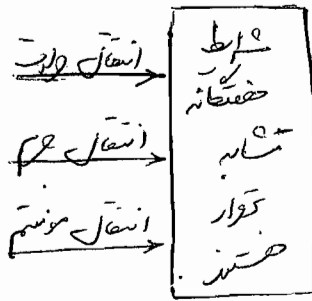 انتقال حرارت
انتقال جرم
انتقال مومنتم
شرایط
هفتگانه
تشابه
برقرار
هستند.